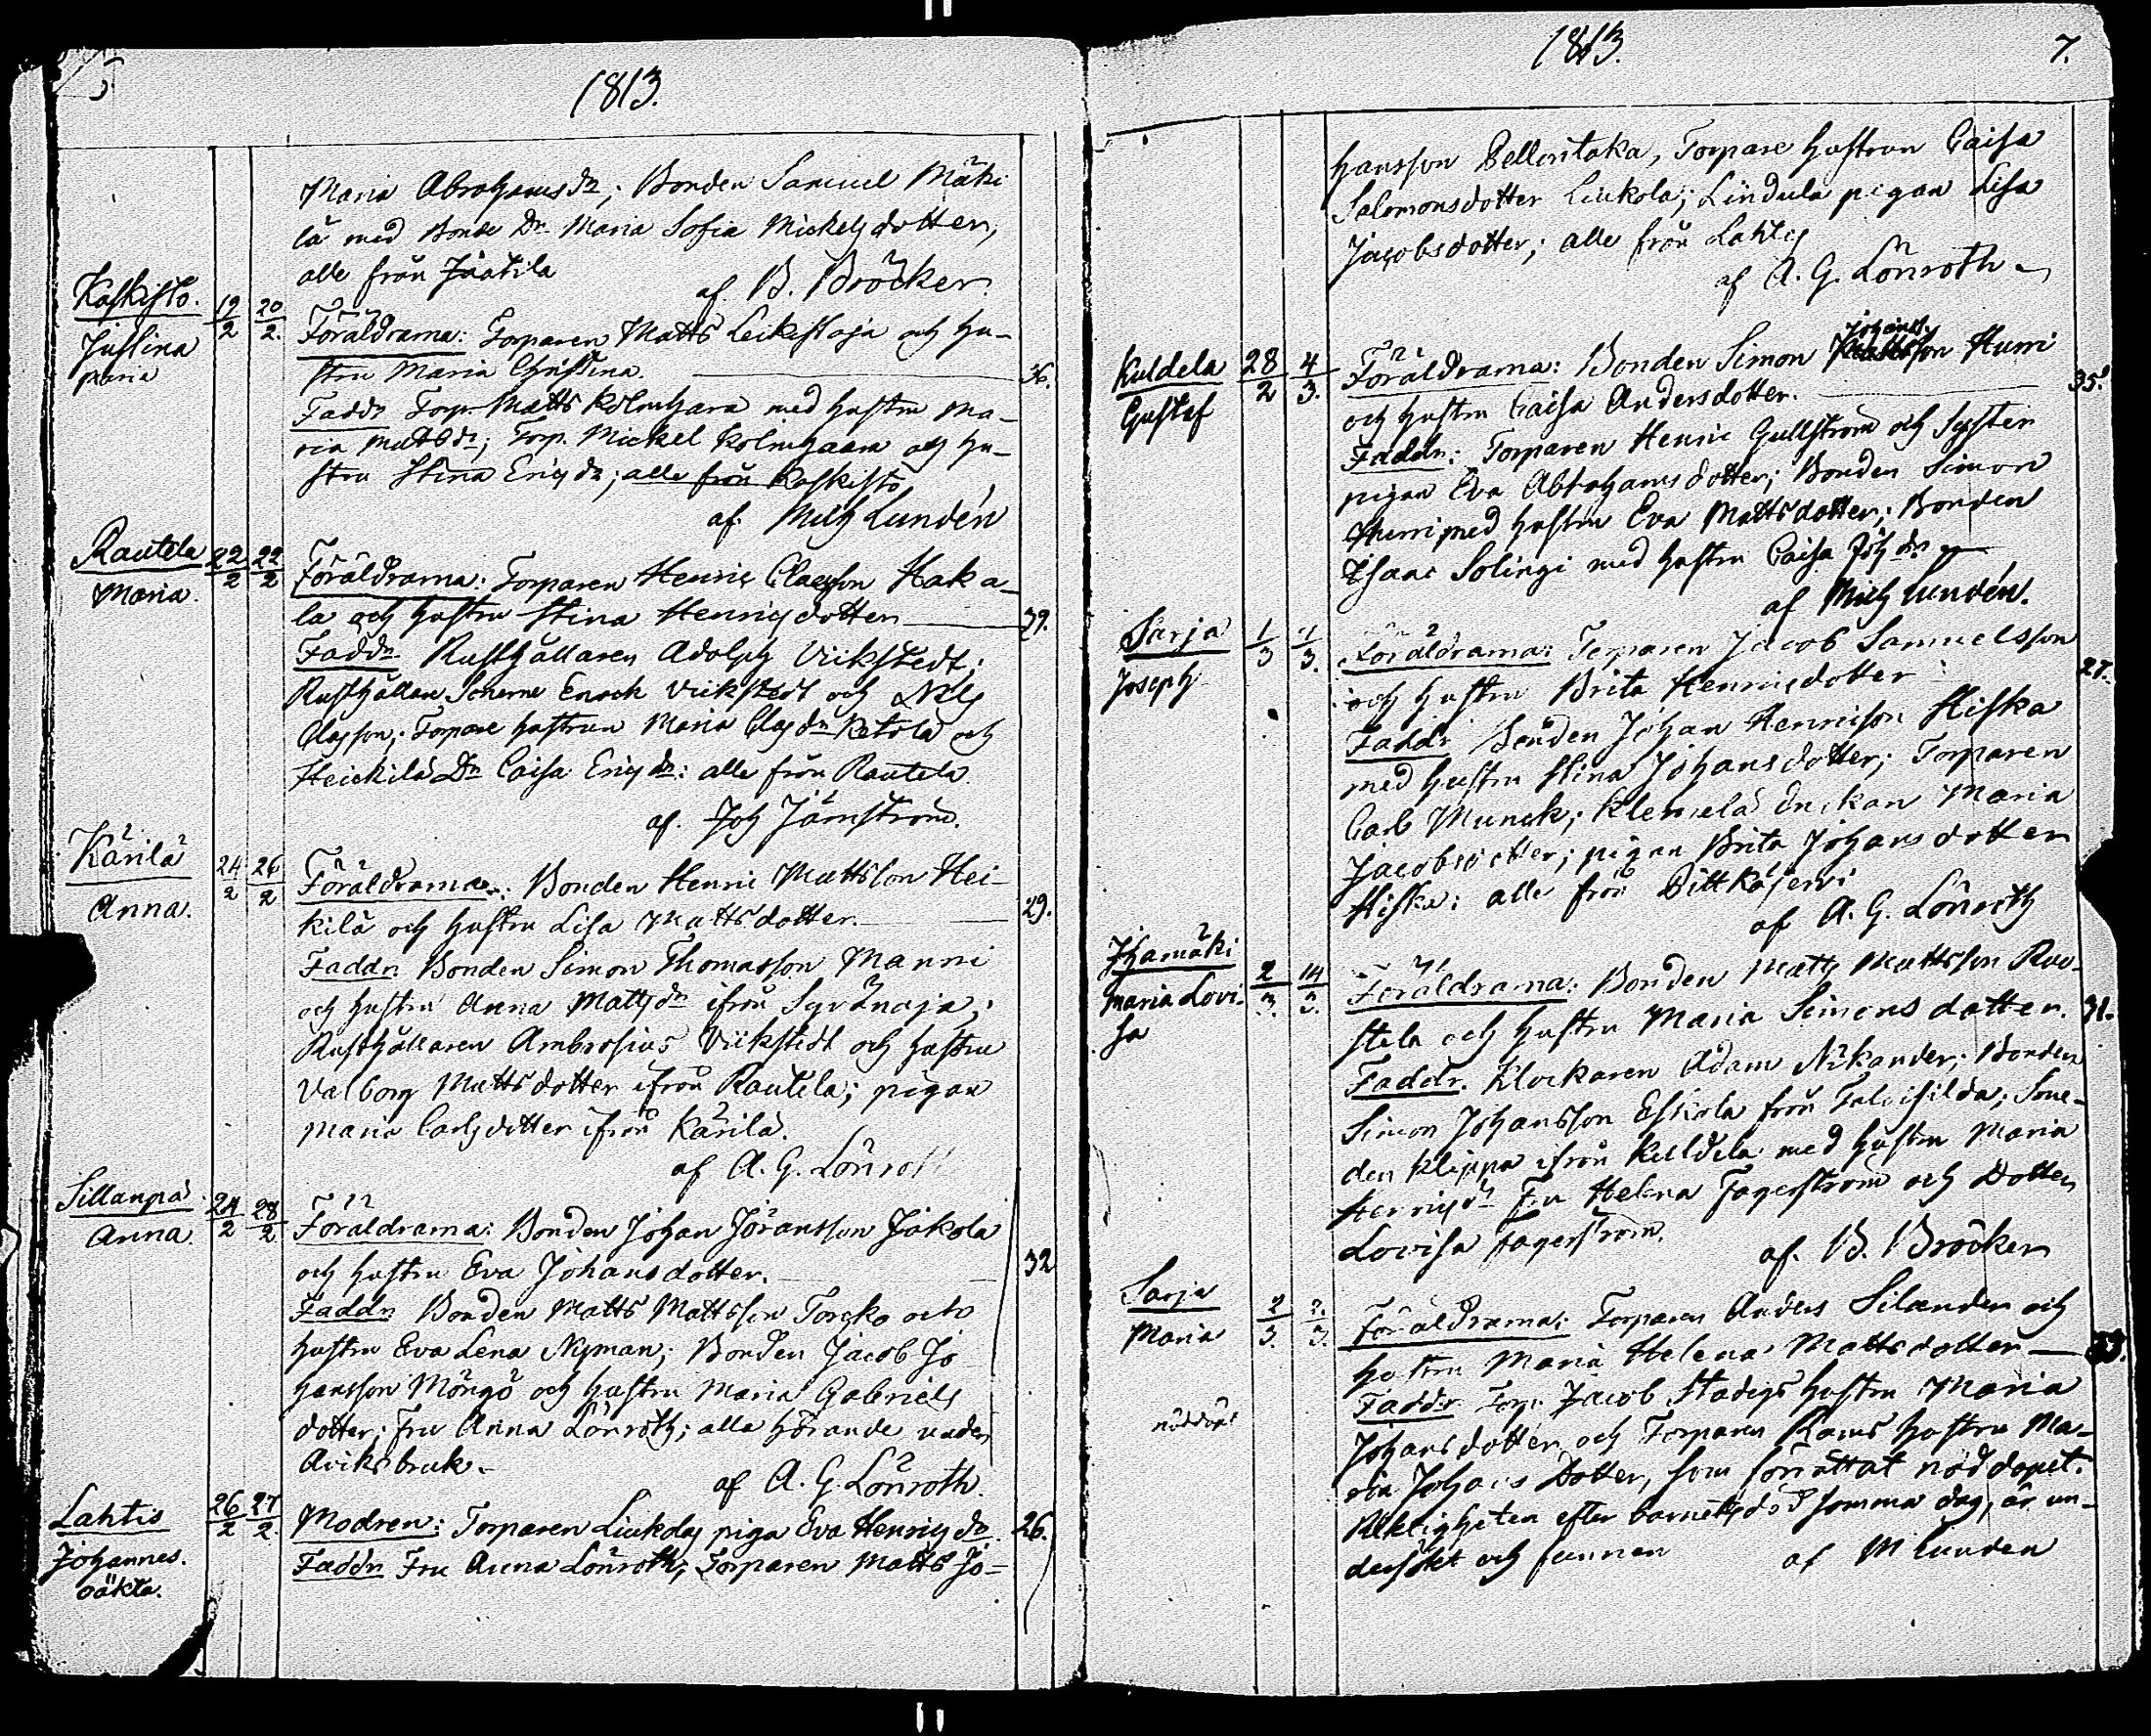 1813.
Maria Abrahamsdr; Bonden Samuel Mäki
lä med Bonde Dr Maria Sofia Mickelsdotter,
alle från Jäätila
af B. Bröcker.
Kaskisto.
Justina
Maria
19/2 20/2.
Föräldrarna: Torparen Matts Leikistoja och hu-
stru Maria Christina. 36.
Faddr Torp. Matts Kolmhara med hustru Ma-
ria Mattsdr; Torp. Mickel Kolmhaara och hu-
stru Stina Ericsdr; alle från Kaskisto
af. Mich Lundén
Rautela
Maria.
22/2 22/2
Föräldrarna: Torparen Henric Classon Haka-
la och hustru Stina Henricsdotter 39.
Faddr Rusthållaren Adolph Vickstedt;
Rusthållare Sönerne Enock Vickstedt och Nils
Classon; Torpare hustrun Maria Clasdr Ketola och
Heickilä Dr Caisa Ericsdr: alle från Rautela.
af. Joh Järnström.
Kärilä
Anna.
24/2 26/2
Föräldrarna: Bonden Henric Mattsson Hei-
kilä och hustru Lisa Mattsdotter. 29.
Faddr Bonden Simon Thomasson Manni
och hustru Anna Mattsdr ifrån Syvänoja;
Rusthållaren Ambrosius Vickstedt och hustru
Valborg Mattsdotter ifrån Rautela; pigan
Maria Carlsdotter ifrån Kärilä.
af A. G. Lönroth
Sillanpä
Anna.
24/2 28/2
Föräldrarna: Bonden Johan Jöransson Jakola
och hustru Eva Johansdotter. 32
Faddr Bonden Matts Mattsson Torcko och
hustru Eva Lena Nyman; Bonden Jacob Jo
hansson Möngö och hustru Maria Gabriels
dotter; Fru Anna Lönroth; alla hörande under
Aviksbruk.
af A. G. Lönroth.
Lahtis
Johannes.
oäkta.
26/2 27/2.
Modren: Torparen Liukolas piga Eva Henricsdr. 26.
Faddr Fru Anna Lönroth, Torparen Matts Jo-
1813. 7.
hansson Pellontaka, Torpare hustrun Caisa
Salomonsdotter Liukola; Lindula pigan Lisa
Jacobsdotter; alle från Lahtis
af A. G. Lönroth
Kuldela
Gustaf
28/2 4/3.
Föräldrarna: Bonden Simon Johanss. Hurri
och hustru Caisa Andersdotter. 35.
Faddr: Torparen Henric Gullström och Syster
pigan Eva Abrahamsdotter; Bonden Simon
Hurri med hustru Eva Mattsdotter; Bonden
Isaac Solingi med hustru Caisa Johdr
af Mich Lundén.
Sarja
Joseph
1/3
Föräldrarna: Torparen Jacob Samuelsson
och hustru Brita Henricsdotter 27.
Faddr Bonden Johan Henricson Hiska
med hustru Stina Johansdotter; Torparen
Carl Munck; Klemelä Drickan Maria
Jacobsdotter; pigan Brita Johansdotter
Hiska: alle från Pittkäjervi
af A. G. Lönroth
Ihamäki
Maria Lovi-
sa
2/3. 14/3.
Föräldrarna: Bonden Matts Mattsson Ruo-
stela och hustru Maria Simonsdotter. 31.
Faddr. Klockaren Adam Nikander; Bonden
Simon Johansson Eskola från Talvisilda; Sme-
den Klippa ifrån Kuldela med hustru Maria
Henricsdr Fru Helena Fagerström och Dotter
Lovisa Fagerström.
af. B. Bröcker
Sarja
Maria
nöddöpt
2/3. 2/3.
Föräldrarna: Torparen Anders Silander och
hustru Maria Helena Mattsdotter 33.
Faddr Torp. Jacob Stadigs hustru Maria
Johansdotter och Torparen Rams hustru Ma-
ria Johans Dotter, som förrättat nöddopet.
Riktigheten efter barnets död samma dag, är un-
dersökt och funnen
af M Lunden